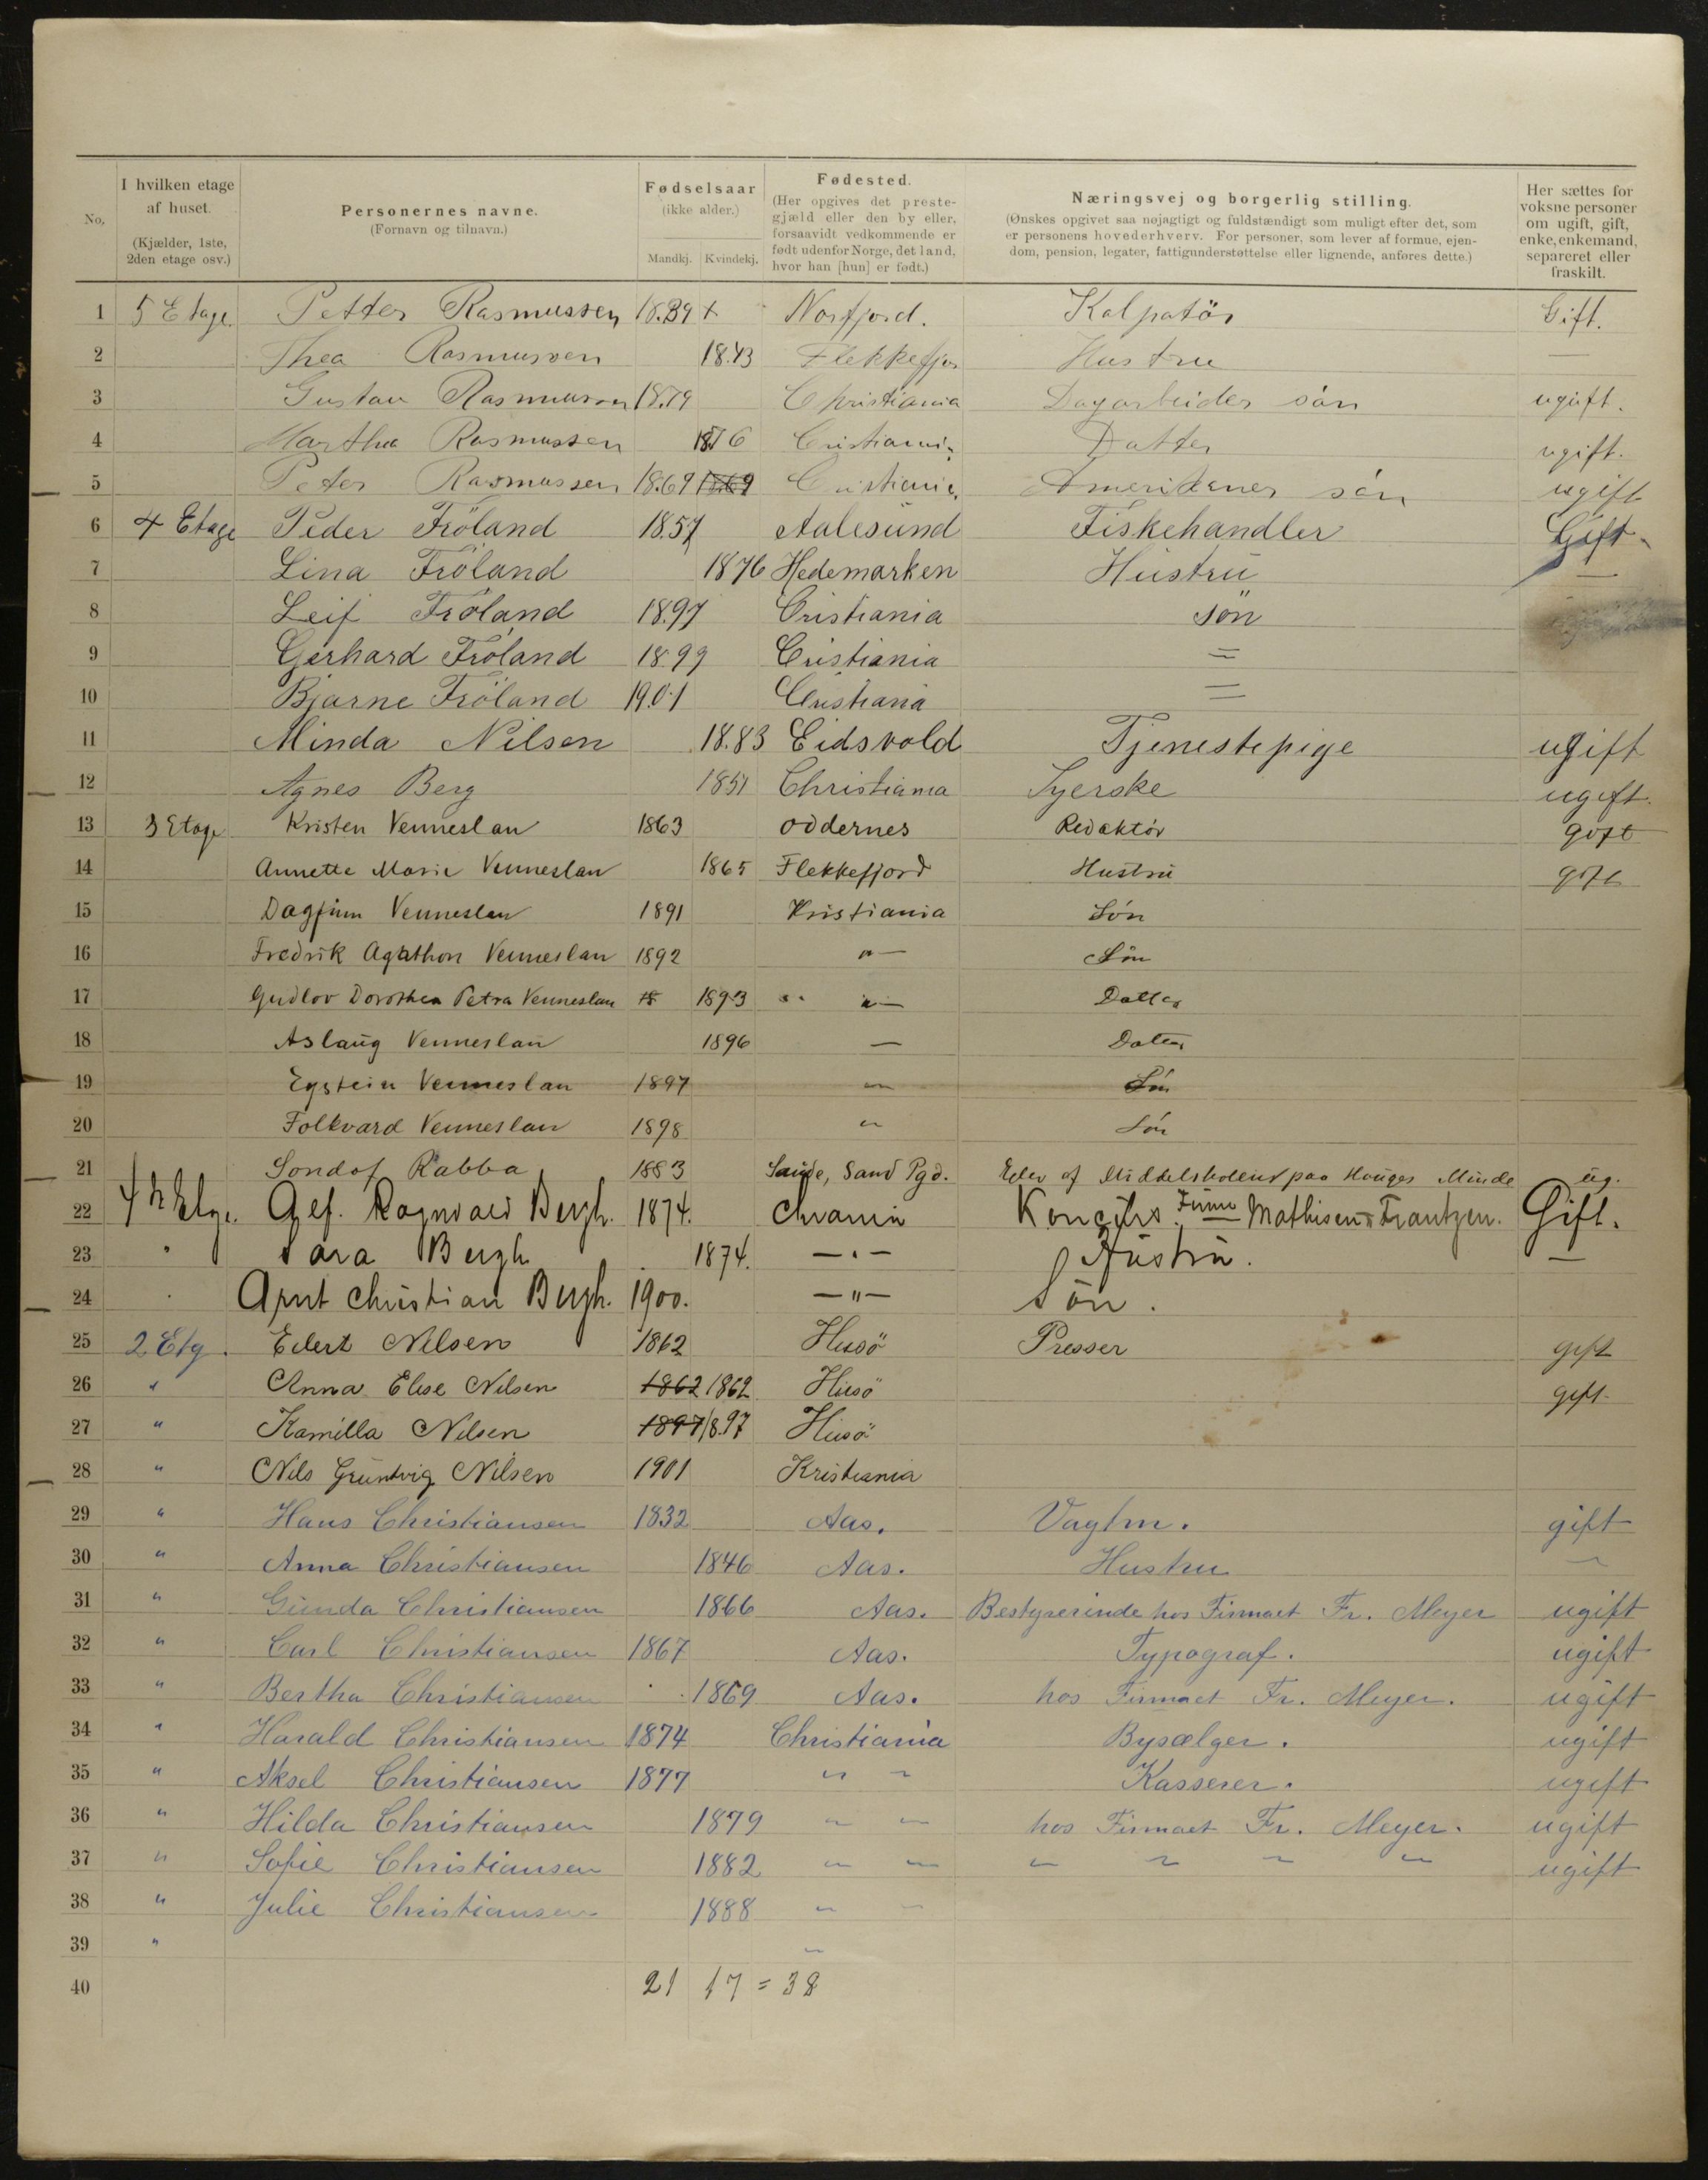 No.
I hvilken etage af huset.
(Kjælder, 1ste, 2den etage osv.)
Personernes navne.
(Fornavn og tilnavn.)
Fødselsaar
(ikke alder.)
Mandkj. Kvindekj.
Fødested.
(Her opgives det preste-
gjæld eller den by eller,
forsaavidt vedkommende er
født udenfor Norge, det land,
hvor han [hun] er født.)
Næringsvej og borgerlig stilling.
(Ønskes opgivet saa nøjagtigt og fuldstændigt som muligt efter det, som
er personens hovederhverv. For personer, som lever af formue, ejen-
dom, pension, legater, fattigunderstøttelse eller lignende, anføres dette.)
Her sættes for
voksne personer
om ugift, gift,
enke, enkemand,
separeret eller
fraskilt.
1 5 Etage. Petter Rasmussen 18.39 Norfjord. Kolpotör Gift.
2 Thea Rasmussen 18.43 Flekkefjor Hustru —
3 Gustav Rasmussen 18.79 Christiania Dagarbeider sön ugift.
4 Martha Rasmussen 1876 Cristiania Datter ugift.
5 Peter Rasmussen 18.69 1869 Cristiania Amerikaner sön ugift
6 4 Etage Peder Fröland 18.57 Aalesund Fiskehandler Gift
7 Lina Fröland 1876 Hedemarken Hustru —
8 Leif Fröland 18.97 Cristiania sön
9 Gerhard Fröland 18.99 Cristiania =
10 Bjarne Fröland 19.01 Cristiania =
11 Minda Nilsen 18.83 Eidsvold Tjenestepige ugift
12 Agnes Berg 1851 Christiania Syerske ugift.
13 3 Etage Kristen Venneslan 1863 Oddernes Redaktör gift
14 Annette Marie Venneslan 1865 Flekkefjord Hustru gift
15 Dagfinn Venneslan 1891 Kristiania Sön
16 Fredrik Agathon Venneslan 1892 "— Sön
17 Gudlov Dorothea Petra Venneslan 18 1893 " "— Datter
18 Aslaug Venneslan 1896 — Datter
19 Eystein Venneslan 1897 " Sön
20 Folkvard Venneslan 1898 " Sön
21 Sondof Rabba 1883 Saude, Sand Pgd. Elev af Middelskolens paa Hauges Minde ug.
22 4 de Etg. Alf. Ragnvald Bergh. 1874. Chrania Kontorist Firma Mathisen & Frantzen. Gift.
23 " Sara Bergh 1874. —"— Hustru. —
24 " Arnt Christian Bergh. 1900. —"— Sön.
25 2 Etg. Edert Nilsen 1862 Husö Presser gift
26 " Anna Elise Nilsen 1862 1862 Husö gift.
27 " Kamilla Nilsen 1897 18.97 Husö
28 " Nils Gruntvig Nilsen 1901 Kristiania
29 " Hans Christiansen 1832 Aas. Vagtm. gift
30 " Anna Christiansen 1846 Aas. Hustru "
31 " Gunda Christiansen 1866 Aas. Bestyrerinde hos Firmaet Fr. Meyer ugift
32 " Carl Christiansen 1867 Aas. Typograf. ugift
33 " Bertha Christiansen 1869 Aas. hos Firmaet Fr. Meyer. ugift
34 " Harald Christiansen 1874 Christiania Bysælger. ugift
35 " Aksel Christiansen 1877 " " Kasserer. ugift
36 " Hilda Christiansen 1879 " " hos Firmaet Fr. Meyer. ugift
37 " Sofie Christiansen 1882 " " " " " " ugift
38 " Julie Christiansen 1888 " "
39 " "
40 21 17 = 38